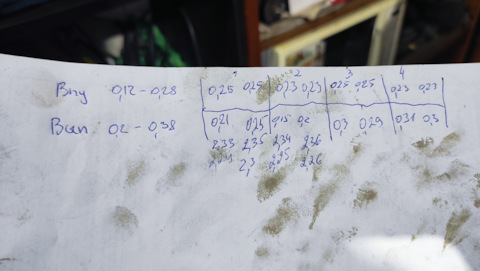 1 2 3 4
Впу 0,12 – 0,28 0,25 0,25 0,23 0,23 0,25 0,25 0,23 0,23
Вып 0,2 – 0,38 0,21 0,25 0,15 0,2 0,3 0,29 0,31 0,3
2,33 2,35 2,34 2,36
2,3 2,25 2,26